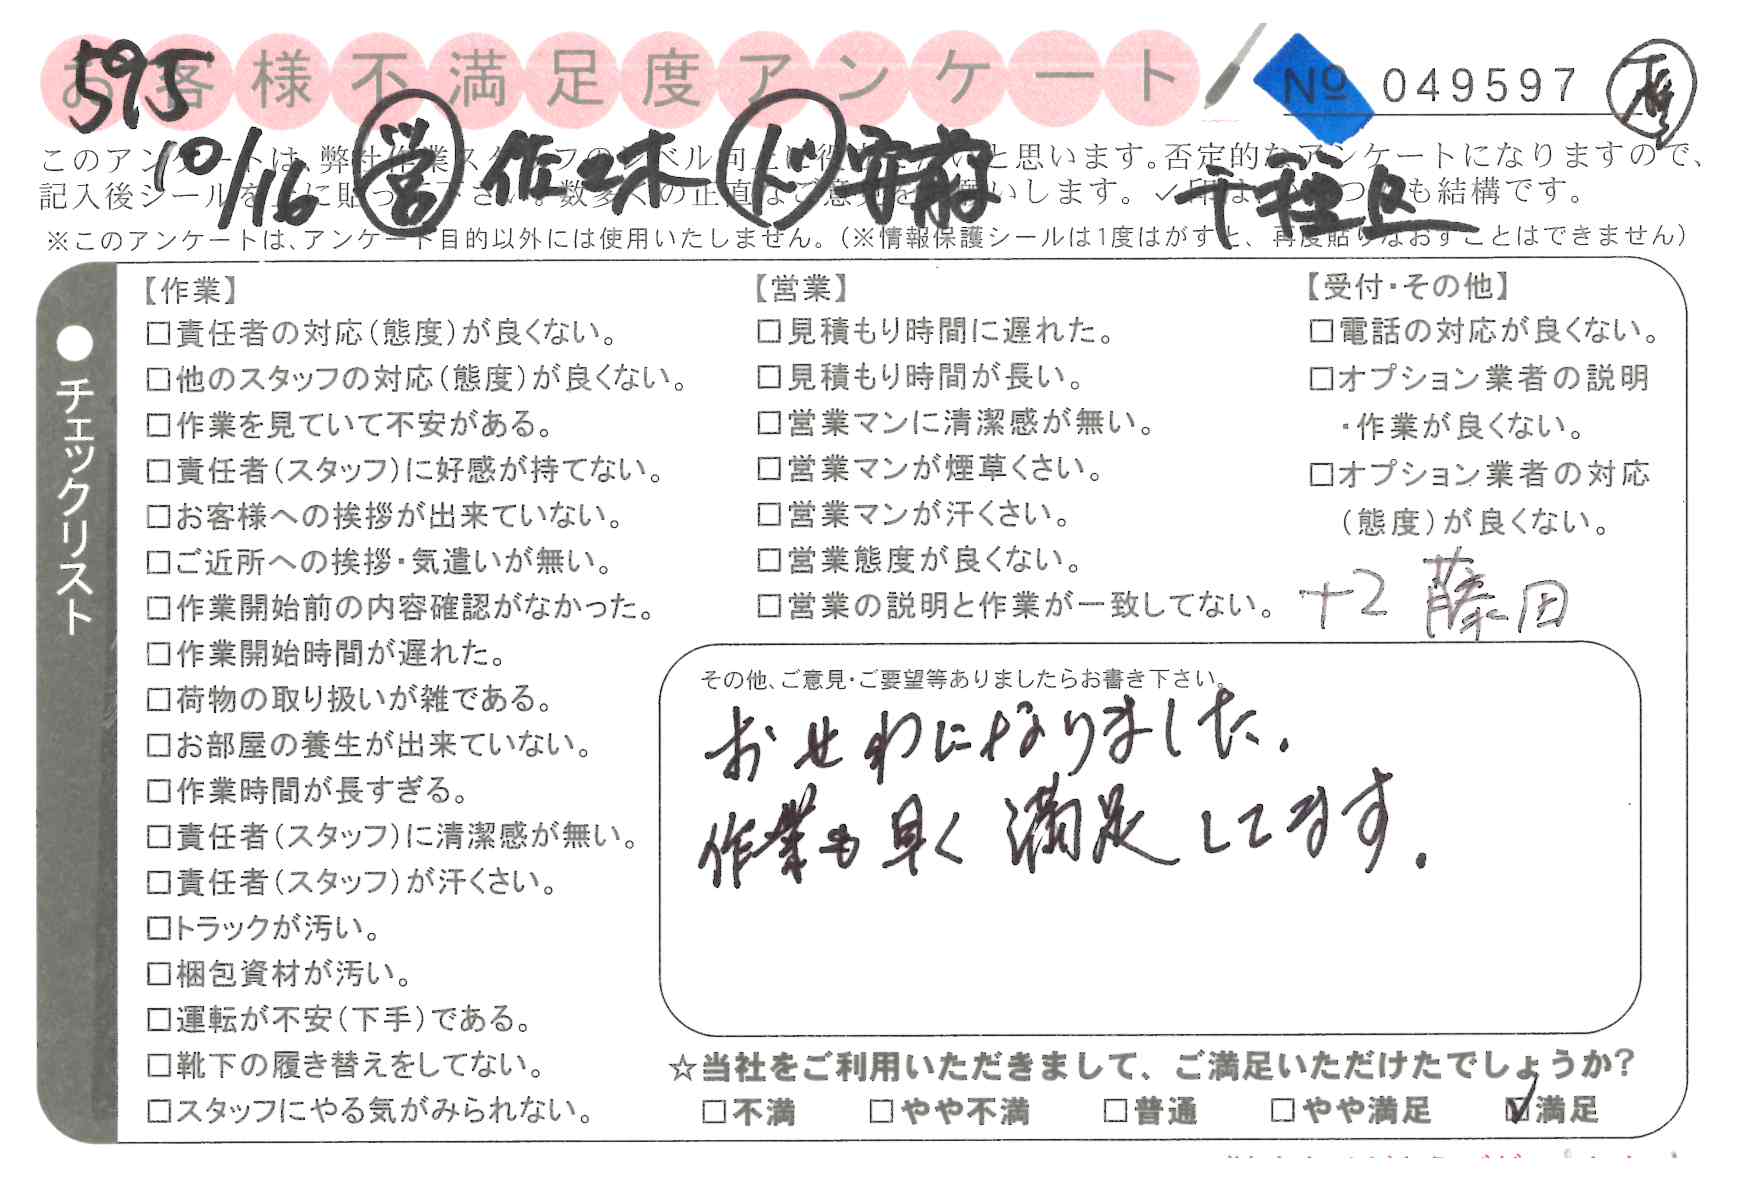 お客様不満足度アンケート
595
No 049597
10/16 営 佐々木 ド 安藤 千種区
このアンケートは、弊社作業スタッフのレベル向上に役立てたいと思います。否定的なアンケートになりますので、
記入後シールを上に貼って下さい。数多くの正直なご意見をお願いします。✓印はいくつでも結構です。
※このアンケートは、アンケート目的以外には使用いたしません。(※情報保護シールは1度はがすと、再度貼りなおすことはできません)
●チェックリスト
【作業】
□責任者の対応(態度)が良くない。
□他のスタッフの対応(態度)が良くない。
□作業を見ていて不安がある。
□責任者(スタッフ)に好感が持てない。
□お客様への挨拶が出来ていない。
□ご近所への挨拶・気遣いが無い。
□作業開始前の内容確認がなかった。
□作業開始時間が遅れた。
□荷物の取り扱いが雑である。
□お部屋の養生が出来ていない。
□作業時間が長すぎる。
□責任者(スタッフ)に清潔感が無い。
□責任者(スタッフ)が汗くさい。
□トラックが汚い。
□梱包資材が汚い。
□運転が不安(下手)である。
□靴下の履き替えをしてない。
□スタッフにやる気がみられない。
【営業】
□見積もり時間に遅れた。
□見積もり時間が長い。
□営業マンに清潔感が無い。
□営業マンが煙草くさい。
□営業マンが汗くさい。
□営業態度が良くない。
□営業の説明と作業が一致してない。
【受付・その他】
□電話の対応が良くない。
□オプション業者の説明
・作業が良くない。
□オプション業者の対応
(態度)が良くない。
+2 藤田
その他、ご意見・ご要望等ありましたらお書き下さい。
おせわになりました.
作業も早く満足してます.
☆当社をご利用いただきまして、ご満足いただけたでしょうか?
□不満 □やや不満 □普通 □やや満足 ☑満足